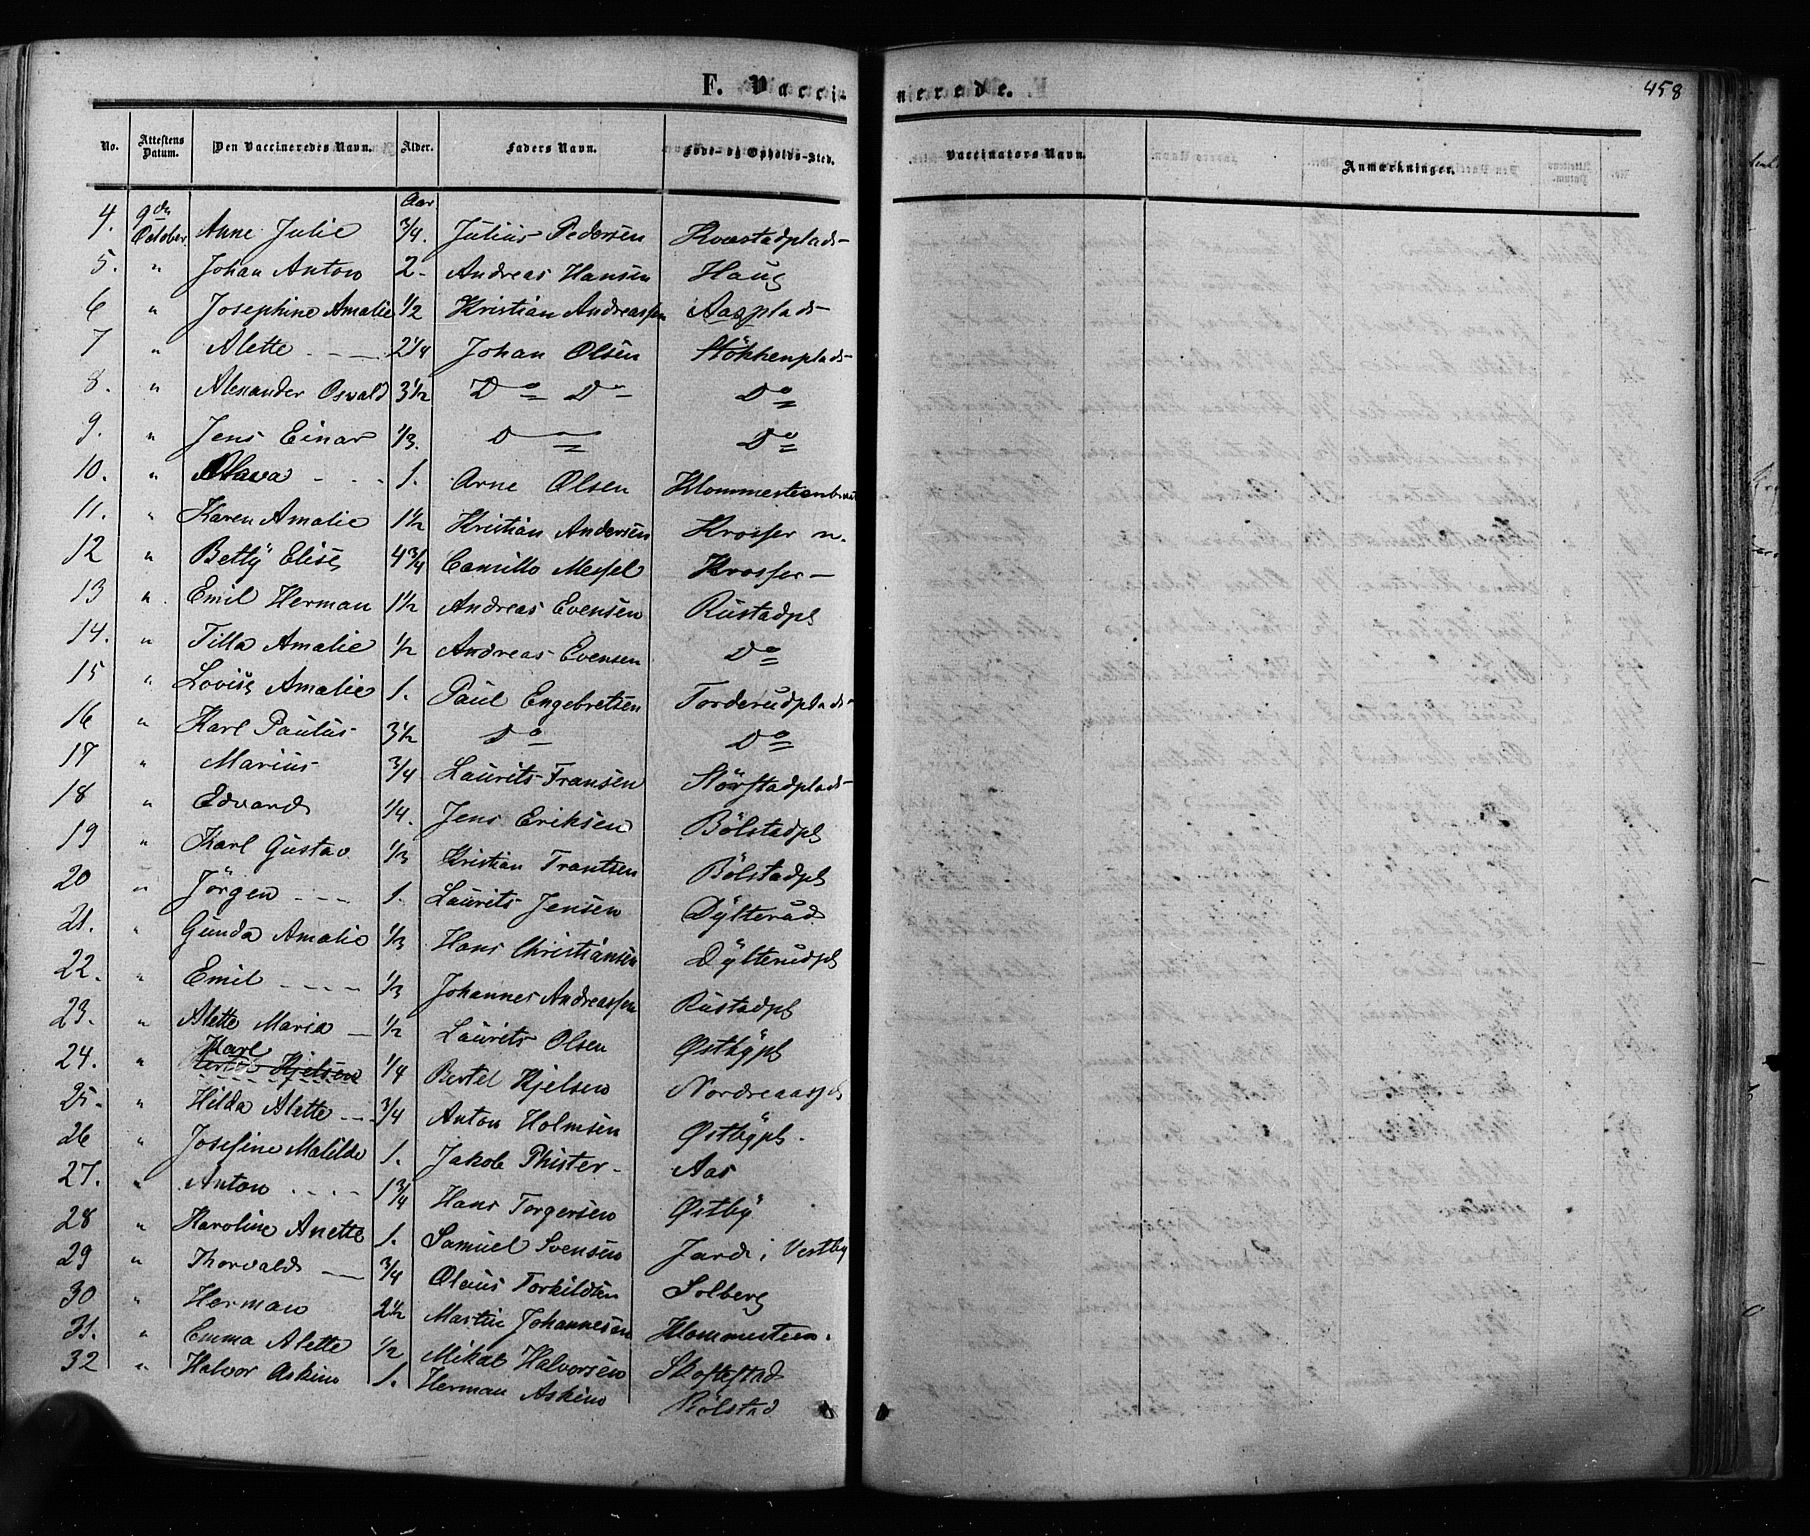 F. Vacci-
nerede.
458
No. Attestens Datum. Den Vaccineredes Navn. Alder. Faders Navn. Føde- og Opholds-Sted. Vaccinators Navn. Anmærkninger.
Aar
4. 9de October. Anne Julie 3/4. Julius Pedersen Kvæstadplads-
5. " Johan Anton 2- Andreas Hansen Haug
6 " Josephine Amalie 1/2 Kristian Andreassen Aasplads-
7 " Alette - - - 2 1/4 Johan Olsen Støkkenplads-
8. " Alexander Osvald 3 1/2 Do Do Do
9. " Jens Einar 1/3. Do Do
10. " - - - 1. Arne Olsen
11. " Karen Amalie 1 1/2 Kristian Andersen Krosser n.
12 " Betty Elise 4 3/4 Camillo Messel Krosser-
13 " Emil Herman 1 1/2 Andreas Evensen Rustadpl
14. " Tilla Amalie 1/2 Andreas Evensen Do
15 " Lovise Amalie 1. Paul Engebretsen Torderudplads-
16 " Karl Paulus 3 1/2 Do Do
17 " Marius 3/4 Laurits Fransen Nørstadplads-
18 " Edvard 1/4. Jens Eriksen Bölstadpl
19 " Karl Gustav 1/3 Kristian Frantsen Bölstadpl
20 " Jörgen - - - 1. Laurits Jensen Dÿlterud
21. " Gunda Amalie 1/3 Hans Christiansen Dÿlterudpl
22. " Emil - - - - 1/3 Johannes Andreassen Rustadpl
23. " Alette Maria - 1/2 Laurits Olsen Østbÿpl
24. " Karl 1/4 Bertel Kjelsen Nordreaaspl
25. " Hilda Alette - - 3/4 Anton Holmsen Østbÿpl.
26 " Josefine Matilde 1. Jakob Phister- Aas
27. " Anton - - - - 1 3/4 Hans Torgersen Østbÿ
28 " Karoline Anette 1. Samuel Svensen Jard i Vestby
29 " Thorvald - 3/4 Olaus Torkildsen Solberg
30 " Herman 2 1/2 Martin Johannesen Klommesteen.
31. " Emma Alette 1/2 Mikal Halvorsen Skoftestad
32 " Halvor Askim 1. Herman Askim Bölstad